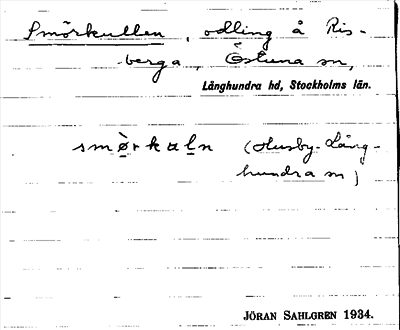 Smörkullen, odling å Ris-
berga, Östuna sn,
Långhundra hd, Stockholms län.
smø̀rkaln (Husby-Lång-
hundra sn)
JÖRAN SAHLGREN 1934.